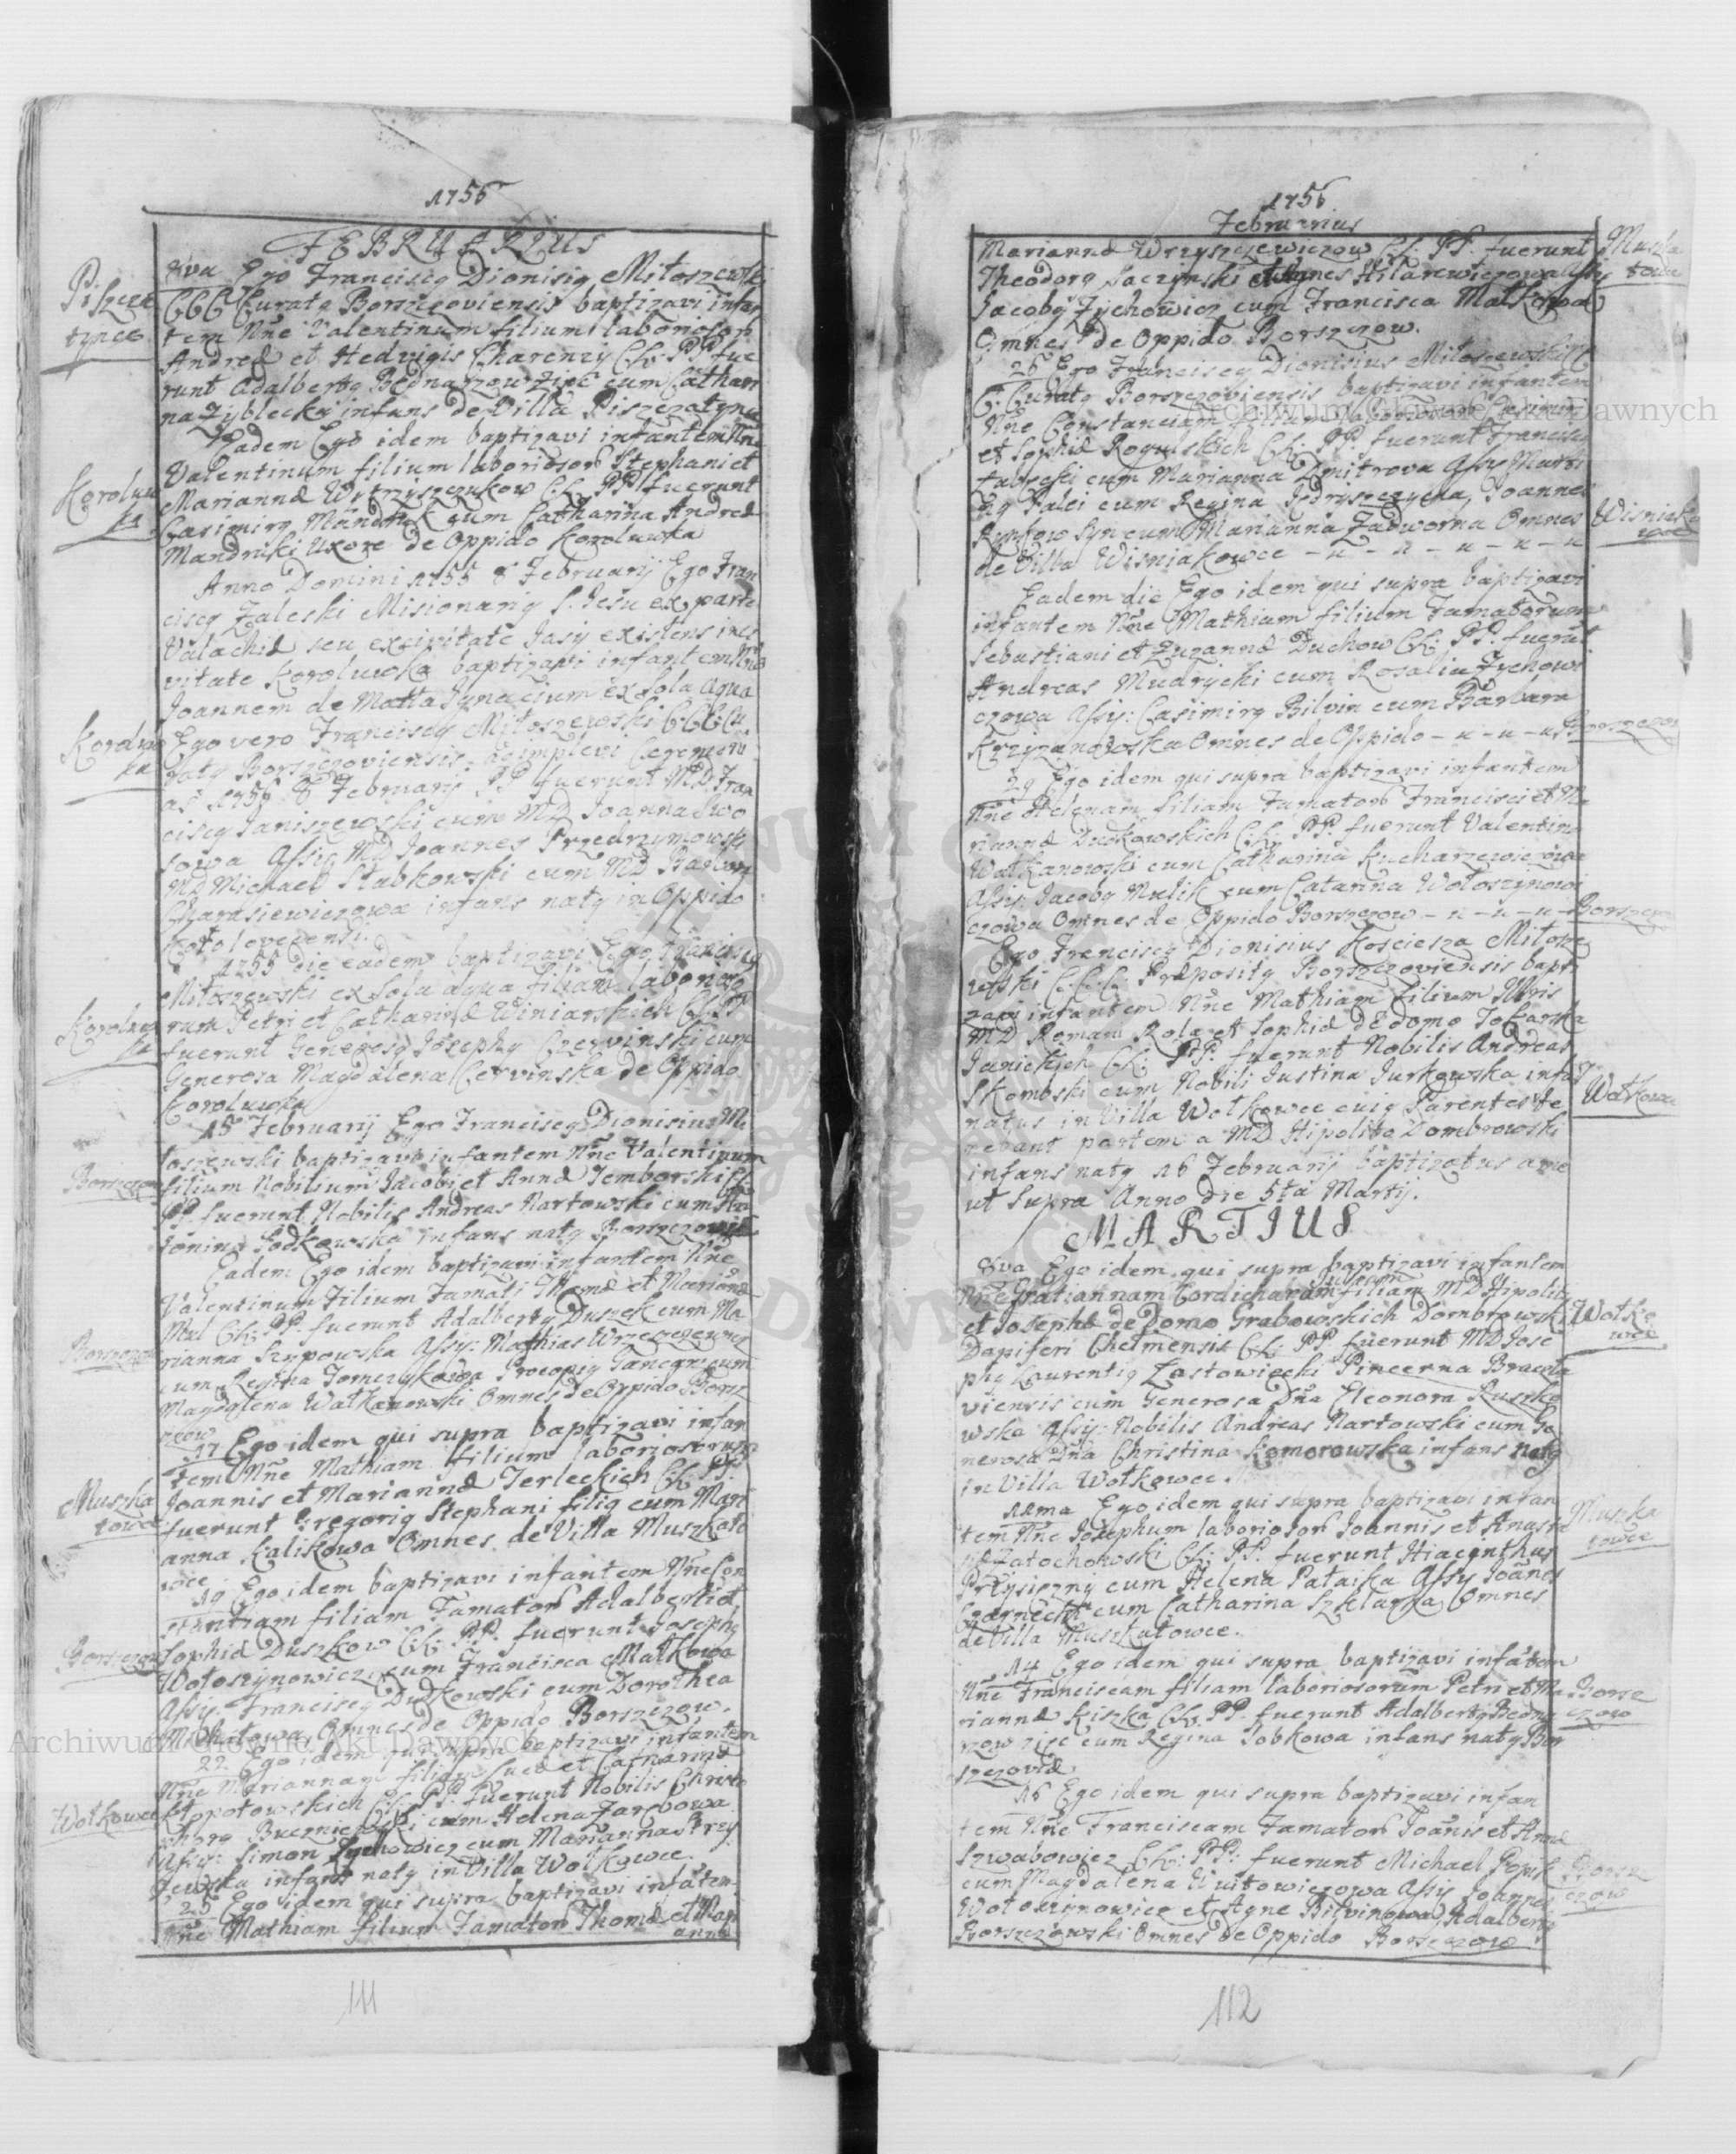 1756
FEBRUARIUS
8va Ego Franciscq Dionisiq Miłoszewski
CCC Curatq Borszczoviensis baptizavi infan
tem Nñe Valentinum filium laboriosor
Andreæ et Hedvigis Charenzy CL: PP fue
runt Adalbertq Bednarzow Zięc cum Cathari
na Zyblecka infans de Villa Piszczatynce
Piszcza
tynce
Eadem Ego idem baptizavi infantem Nñe
Valentinum filium laboriosor Stephani et
Mariannæ Wytrzyszczukow CL PP fuerunt
Casimirq Mandruk cum Catharina Andreæ
Mandruki Uxore de Oppido Korolowka
Koroluw
ka
Anno Domini 1755 8 Februarij Ego Fran
ciscq Zaleski Misionariq S. Jesu ex parte
Valachiæ seu ex civitate Jasy existens in Ci
vitate Koroluwka baptizavi infantem Nñe
Joannem de Matta Ignacium ex sola aqua
Ego vero Franciscq Miłoszewski CCC Cu
ratq Borszczoviensis adimplevi Ceremoni
as 1756 8 Februarij PP fuerunt MD Fran
ciscq Janiszewski cum MD Joanna
sowa Assiq MD Joannes Przedrzymowski
MD Michael Słabkowski cum MD Barbara
Charasiewiczowa infans natq in Oppido
1755 die eadem baptizavi Ego Franciscq
Miłoszewski ex sola aqua filiam laborioso
rum Petri et Catharinæ Winiarskich CL PP
fuerunt Generosq Josephq Czerwinski cum
Generosa Magdalena Cerwinska de Oppido
Koroluwka
Koroluw
ka
15 Februarij Ego Franciscq Dionisius Mi
łoszewski baptizavi infantem Nñe Valentinum
filium Nobilium Jacobi et Annæ Jemborski CL
PP. fuerunt Nobilis Andreas Nartowski cum An
tonina Sodkowska infans natq Borszczoviæ
Borszczow
Eadem Ego idem baptizavi infantem Nñe
Valentinum Filium Famati Thomæ et Mariannæ
Mul CL: PP. fuerunt Adalbertq Duszek cum Ma
rianna Szypowska Assis: Mathias
cum Regina Tomczykowa Procopiq cum
Magdalena Wałkanowski Omnes de Oppido Borsz
czow
Borszczow
17 Ego idem qui supra baptizavi infan
tem Nñe Mathiam filium laboriosorum
Joannis et Mariannæ Terleckich CL: PP
fuerunt Gregoriq Stephani filiq cum Mari
anna Kalikowa Omnes de Villa Muszkato
wce
Muszka
towce
19 Ego idem baptizavi infantem Nñe Con
stantiam filiam Famator Adalberti et
Sophiæ Duszkow CL: PP. fuerunt Josephq
Wołoszynowicz cum Francisca Małkowa
Assis: Franciscq Dudkowski cum Dorothea
Michałowa Omnes de Oppido Borszczow.
Borszczow
22 Ego idem qui supra baptizavi infantem
Nñe Mariannam filiam Lucæ et Catharinæ
Kłopotowskich CL: PP: fuerunt Nobilis Christo
phorq cum Helena Zarębowa
Assis: Simon Zychowicz cum Marianna Strzy
żewska infans natq in Villa Wołkowce.
Wołkowce
25 Ego idem qui supra baptizavi infãtem
Nñe Mathiam filium Famator Thomæ et Mari
annæ
111
1756
Februarius
Mariannæ Wrzyszczewiczow CL: PP. fuerunt
Theodorq Saczynski et Agnes Hilarewiczowa Assis
Jacobq Zychowicz cum Francisca Małkowa
Omnes de Oppido Borszczow.
26 Ego Franciscq Dionisius Miłoszewski C
C: Curatq Borszczoviensis baptizavi infantem
Nñe Constanciam filiam laboriosor Casimiri
et Sophiæ Rogulskich CL: PP. fuerunt Franciscq
cum Marianna Dmitrova Assis: Marti
nq Palei cum Regina Joannes
cum Marianna Zadworna Omnes
de Villa Wisniakowce - n - n - n - n - n
Wisniako
wce
Eadem die Ego idem qui supra baptizavi
infantem Nñe Mathium filium Famatorum
Sebastiani et Zuzannæ Duchow CL: PP. fuerũt
Andreas Mudrycki cum Rosalia Zychowi
czowa Assis: Casimirq Bilvin cum Barbara
Krzyzanowska Omnes de Oppido - n - n - n
Borszczow
29 Ego idem qui supra baptizavi infantem
Nñe Helenam filiam Famator Francisci et Ma
riannæ Dudkowskich CL: PP. fuerunt Valentinq
Wałkanowski cum Catharina Kucharzewiczowa
Assis: Jacobq Mulik cum Catarina Wołoszynowi
czowa Omnes de Oppido Borszczow - n - n - n -
Borszczow
Ego Franciscq Dionisius Kosciesza Miłosze
wski C.C.C. Præpositq Borszczoviensis bapti
zavi infantem Nñe Mathiam Filium Illtris
MD Romani Rola et Sophiæ de domo Tokarska
Janickich CL: PP. fuerunt Nobilis Andreas
Skombski cum Nobili Justina Jurkowska infãs
natus in Villa Wołkowce cuiq Parentes te
nebant partem a MD Hipolito Dombrowski
infans natq 16 Februarij baptizatus a me
ut supra Anno die 5ta Martij.
Wołkowce
MARTIUS
8va Ego idem qui supra baptizavi infantem
Nñe Gratiannam Cordicharam filiam MD Hipoliti
et Josephæ de Domo Grabowskich Dombrowski
Dapiferi Chelmensis CL: PP. fuerunt MD Jose
phq Laurentiq Łastowiecki Pincerna Bracła
viensis cum Generosa Dña Eleonora Ruszko
wska Assis: Nobilis Andreas Nartowski cum Ge
nerosa Dña Christina Komorowska infans natq
in Villa Wołkowce.
Wołko
wce
11ma Ego idem qui supra baptizavi infan
tem Nñe Josephum laboriosor Joannis et Anasta
siæ Załochowski CL: PP: fuerunt Hiacynthus
Przysiczny cum Helena Pataska Assis Joãnes
Czarnecki cum Catharina Szklarka Omnes
de Villa Muszkatowce.
Muszka
towce
14 Ego idem qui supra baptizavi infãtem
Nñe Franciscam filiam laboriosorum Petri et Ma
riannæ Kiszka CL: PP. fuerunt Adalbertq Bedna
rzow Zięc cum Regina Sobkowa infans natq Bor
szczoviæ
Borsz
czow
16 Ego idem qui supra baptizavi infan
tem Nñe Franciscam Famator Joãnis et Annæ
Szwabowicz CL: PP: fuerunt Michael
cum Magdalena Wuitowiczowa Assis Joannes
Wołoszynowicz et Agne Bilvinowa, Adalbertq
Borszczowski Omnes de Oppido Borszczow
Borsz
czow
112
Archiwum Główne Akt Dawnych
Archiwum Główne Akt Dawnych